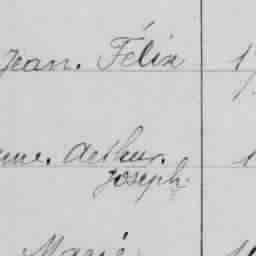 Jean. Félix 1
Arthur. 1
Joseph.
Marie